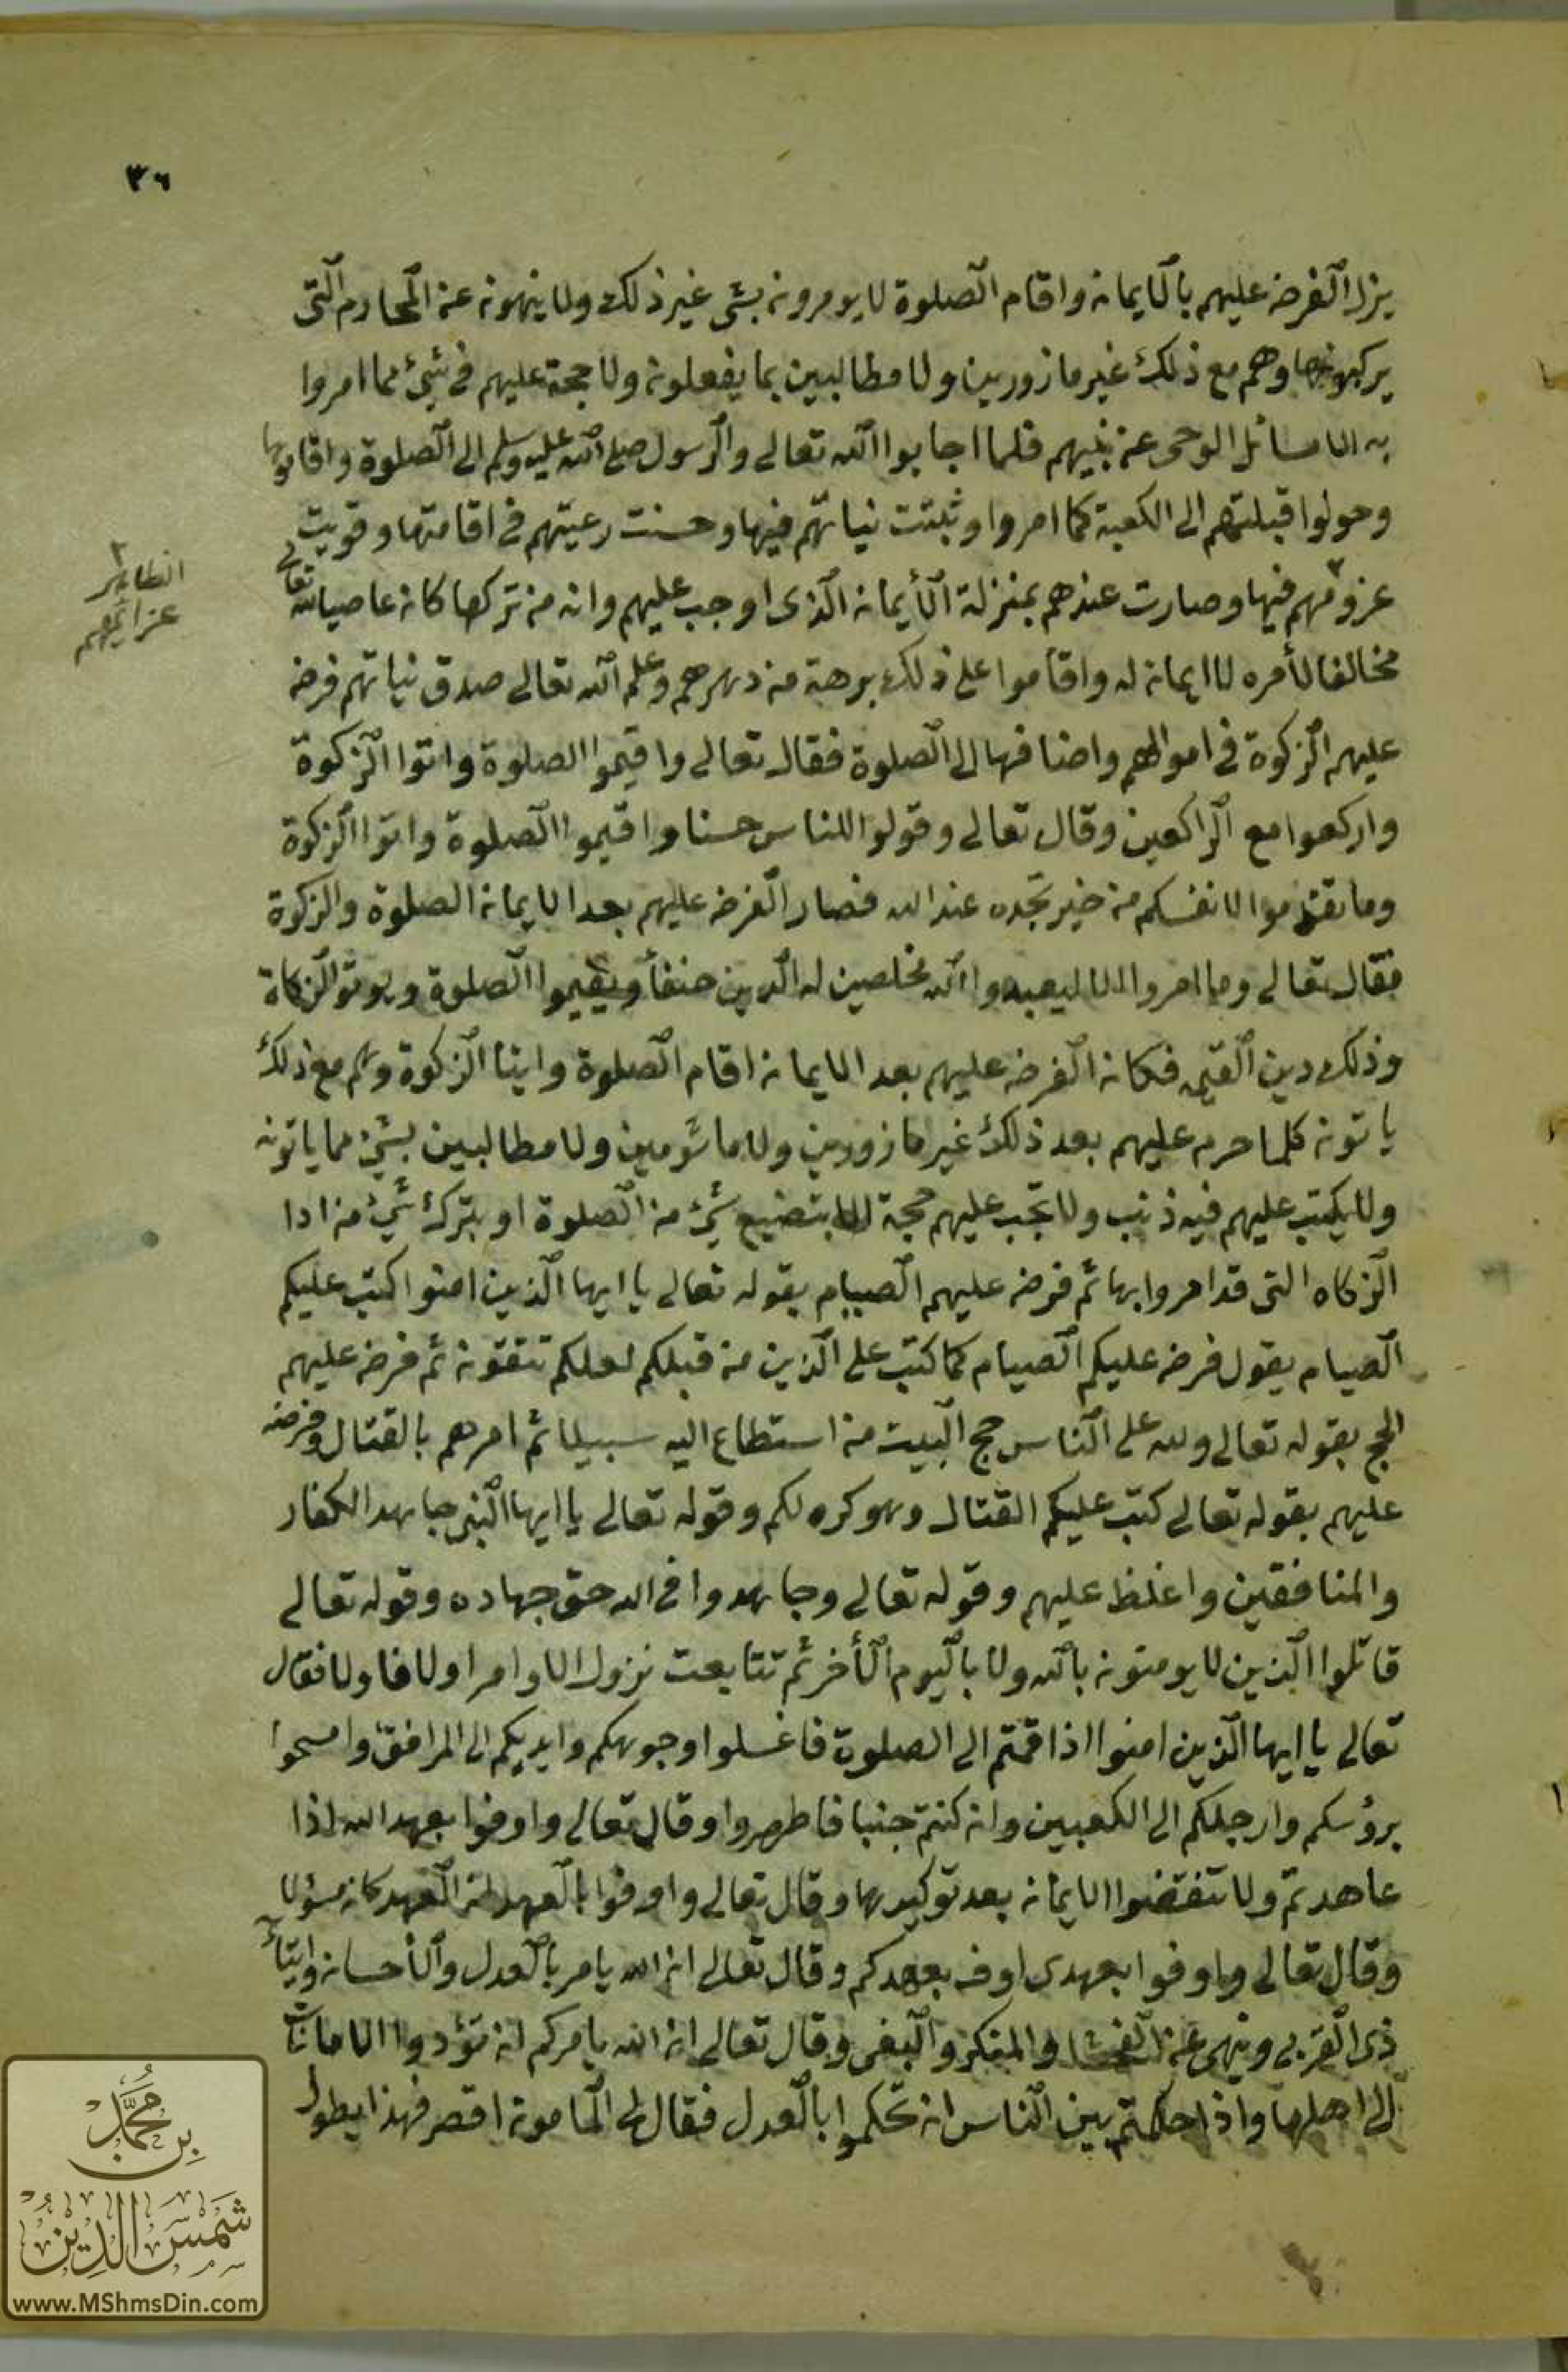 ٣٦
يزل الفرض عليهم بالايمان واقام الصلوة لا يومرون بشى غير ذلك ولا ينهون عن المحارم التى
يركبونها وهم مع ذلك غير مازورين ولا مطالبين بما يفعلون ولا حجة عليهم فى شئ مما امروا
به الا مسائل الوحى عن نبيهم فلما اجابوا الله تعالى والرسول صلى الله عليه وسلم الى الصلوة واقاموها
وحولوا قبلتهم الى الكعبة كما امروا وثبتت نياتهم فيها وحسنت رعيتهم فى اقامتها وقويت
عزومهم فيها وصارت عندهم بمنزلة الأيمان الذى اوجب عليهم وان من تركها كان عاصيا لله تعالى
الظاهر
عزائمهم
مخالفا لأمره لا ايمان له واقاموا على ذلك برهة من دهرهم وعلم الله تعالى صدق نياتهم فرض
عليهم الزكوة فى اموالهم واضافها الى الصلوة فقال تعالى واقيموا الصلوة واتوا الزكوة
واركعوا مع الراكعين وقال تعالى وقولوا للناس حسنا واقيموا الصلوة واتوا الزكوة
وما تقدموا لانفسكم من خير تجده عند الله فصار الفرض عليهم بعد الايمان الصلوة والزكوة
فقال تعالى وما امروا الا ليعبدوا الله مخلصين له الدين حنفأ ويقيموا الصلوة ويوتو الزكاة
وذلك دين القيمه فكان الفرض عليهم بعد الايمان اقام الصلوة وايتا الزكوة وهم مع ذلك
ياتون كلما حرم عليهم بعد ذلك غير مازورين ولا ماثومين ولا مطالبين بشئ مما ياتون
ولا يكتب عليهم فيه ذنب ولا تجب عليهم حجة الا بتضيع شئ من الصلوة او بترك شئ من ادا
الزكاه التى قد امروا بها ثم فرض عليهم الصيام بقوله تعالى يا ايها الذين امنوا كتب عليكم
الصيام يقول فرض عليكم الصيام كما كتب على الذين من قبلكم لعلكم تتقون ثم فرض عليهم
الحج بقوله تعالى ولله على الناس حج البيت من استطاع اليه سبيلا ثم امرهم بالقتال وفرضه
عليهم بقوله تعالى كتب عليكم القتال وهو كره لكم وقوله تعالى يا ايها النبى جاهد الكفار
والمنافقين واغلظ عليهم وقوله تعالى وجاهدوا فى الله حق جهاده وقوله تعالى
قاتلوا الذين لا يومنون بالله ولا باليوم الأخر ثم تتابعت نزول الاوامر اولا فاولا فقال
تعالى يا ايها الذين امنوا اذا قمتم الى الصلوة فاغسلوا وجوهكم وايديكم الى المرافق وامسحوا
برؤسكم وارجلكم الى الكعبين وان كنتم جنبا فاطهروا وقال تعالى واوفوا بعهد الله اذا
عاهدتم ولا تنقضوا الايمان بعد توكيدها وقال تعالى واوفوا بالعهد ان العهد كان مسؤلا
وقال تعالى واوفوا بعهدى اوف بعهدكم وقال تعالى ان الله يامر بالعدل والأحسان وايتأ
ذى القربى وينهى عن الفحشا والمنكر والبغى وقال تعالى ان الله يامركم ان تؤدوا الامانات
الى اهلها واذا حكمتم بين الناس ان تحكموا بالعدل فقال لى المامون اقصر فهذا يطول
بن محمد
شمس الدين
www.MShmsDin.com